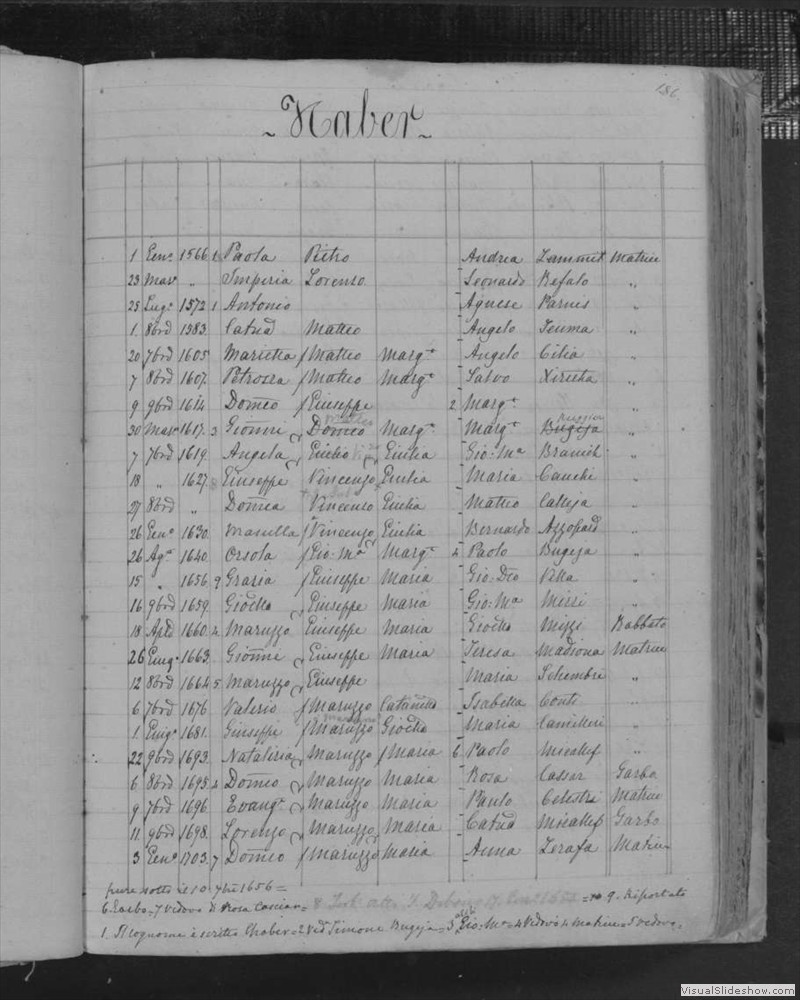 186
~ Haber ~
1 Genº 1566 1 Paola Pietro Andrea Zammit Matrice
23 Marº " Imperia Lorenzo Leonardo Befalo "
25 Lugº 1572 1 Antonio Agnese Parnis "
1. 8bre 1583. Catnª Matteo Angelo Teuma "
20 7bre 1605 Marietta Matteo Margª Angelo Cilia "
7 8bre 1607. Petrossa Matteo Margª Salvo Xiricha "
9 9bre 1614 Domco Giuseppe 2 Margª "
30 Marº 1617. 3 Gionni Domco Margª Margª Bugeja "
7 7bre 1619. Angela Giulio Giulia Gio: Mª "
18 " 1627. Giuseppe Vincenzo Giulia Maria Cauchi "
27 8bre " Domca Vincenzo Giulia Matteo Calleja "
26 Genº 1630 Marulla Vincenzo Giulia Bernardo Azzopard "
26 Agº 1640. Orsola Gio: Mª Margª 4 Paolo Bugeja "
15 " 1656. 9 Grazia Giuseppe Maria Gio: Dco Vella "
16 9bre 1659. Giuseppe Maria Gio: Mª "
18 Aple 1660. 4 Maruzzo Giuseppe Maria Mizzi Rabbato
26 Giugº 1663. Gionne Giuseppe Maria Teresa Madiona Matrice
12 8bre 1664 5 Maruzzo Giuseppe Maria Schembri "
6 7bre 1676 Valerio Maruzzo Isabella Conti "
1 Giugº 1681. Giuseppe Maruzzo Maria Camilleri "
22 9bre 1693. Natalizia Maruzzo Maria 6 Paolo Micallef "
6 8bre 1695. 4 Domco Maruzzo Maria Rosa Cassar Garbo
9 7bre 1696 Evangª Maruzzo Maria Paulo Celestri Matrice
11 9bre 1698. Lorenzo Maruzzo Maria Catnª Micallef Garbo
3 Genº 1703. 7 Domco Maruzzo Maria Anna Zerafa Matrice
pure sotto il 10 7bre 1656 =
6 Garbo = 7 Vedovo di Rosa = 9. Riportato
1. Il cognome è scritto Chaber = 2 Vedª Simone Bugeja = 3 Gio: Mª = 4 Vedovo 4 Matrice = 5 Vedovo =
VisualSlideshow.com